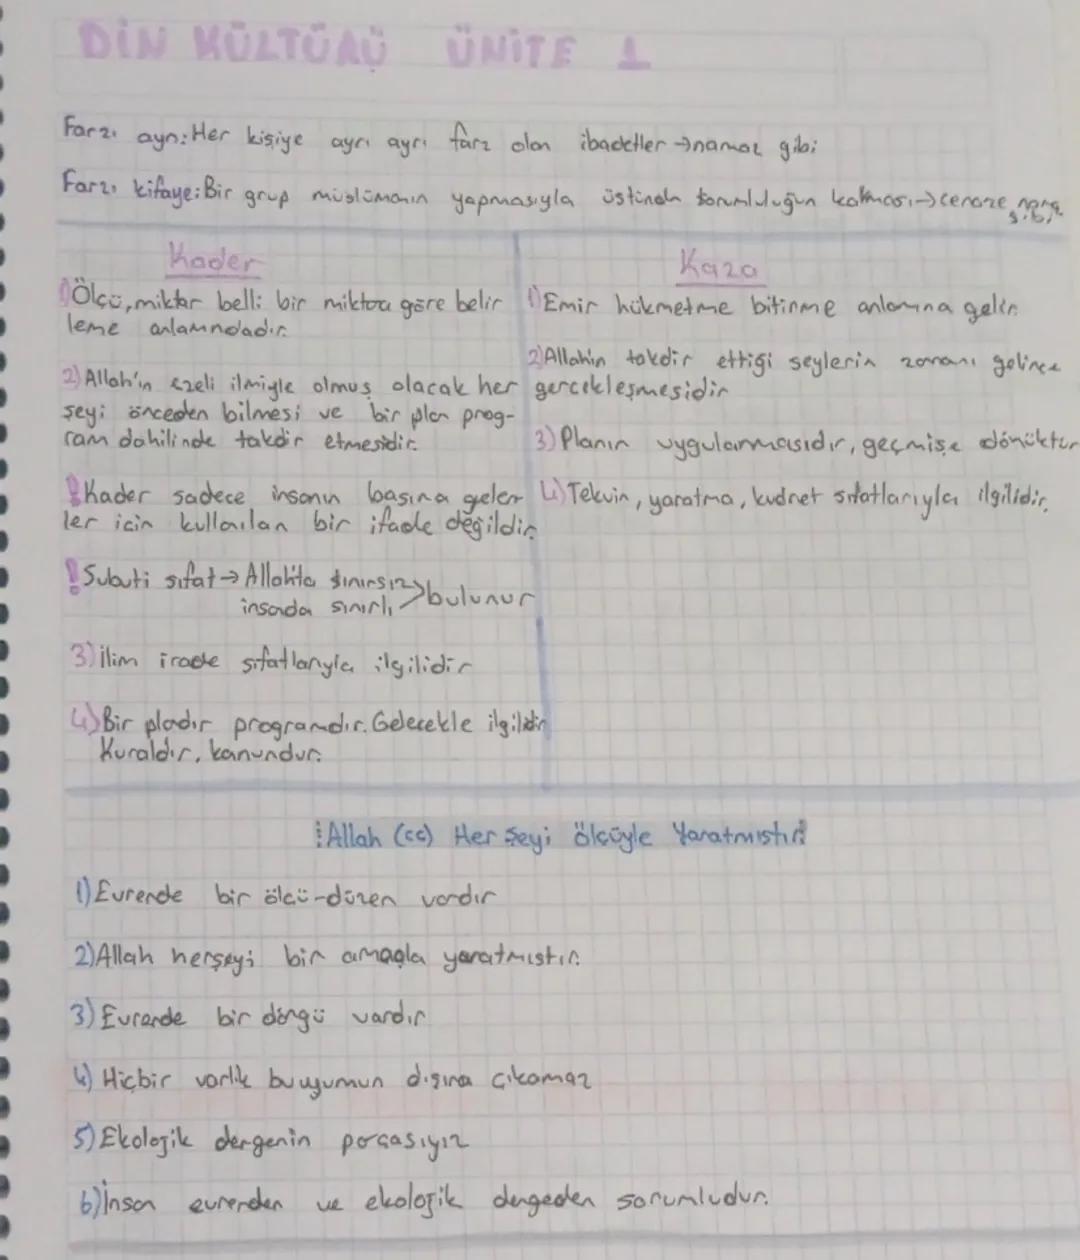 DİN KÜLTÜRÜ ÜNİTE 1
Farzı ayn: Her kişiye ayrı ayrı farz olan ibadetler → namaz gibi
Farzı kifaye: Bir grup müslümanın yapmasıyla üstinden sorumluluğun kalkması → cenaze
Kader
1) Ölçü, miktar belli bir miktara göre belir
leme anlamındadır.
2) Allah'ın ezeli ilmiyle olmuş olacak her
şeyi önceden bilmesi ve bir plan prog-
ram dahilinde takdir etmesidir.
! Kader sadece insanın başına gelen
ler icin kullanılan bir ifade değildir.
! Subuti sıfat → Allah'ta sınırsız > bulunur
insanda sınırlı
3) ilim irade sıfatlarıyla ilgilidir
4) Bir pladır programdır. Gelecekle ilgilidir
Kuraldır, kanundur.
Kaza
1) Emir hükmetme bitirme anlamına gelir.
2) Allahın takdir ettiği seylerin zamanı gelince
gerceklesmesidir
3) Planın uygulanmasıdır, geçmişe dönüktür
4) Tekvin, yaratma, kudret sıfatlarıyla ilgilidir.
! Allah (cc) Her Şeyi ölçüyle Yaratmıştır!
1) Evrende bir ölcü-düzen vardır
2) Allah herşeyi bir amaçla yaratmıstır.
3) Evrende bir döngü vardır
4) Hiçbir varlık bu uyumun dışına çıkamaz
5) Ekolojik dengenin parçasıyız
6) İnsan evrenden ve ekolojik dengeden sorumludur.